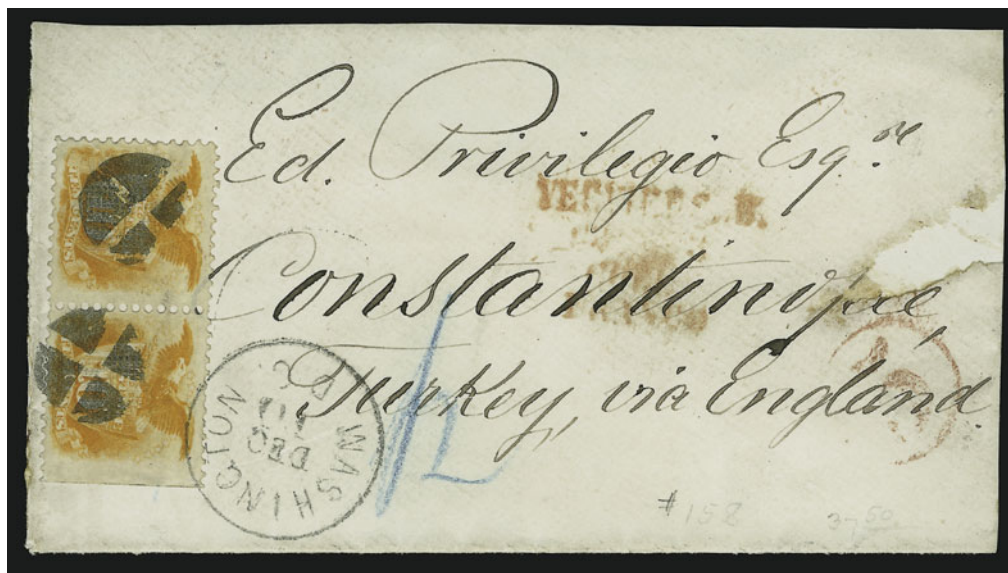 Ed. Privilegio Esqre
Constantinople,
Turkey, via England
WASHINGTON D.C.
DEC
11
#158
37.50